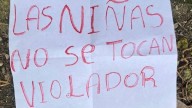 LAS NIÑAS
NO SE TOCAN
VIOLADOR